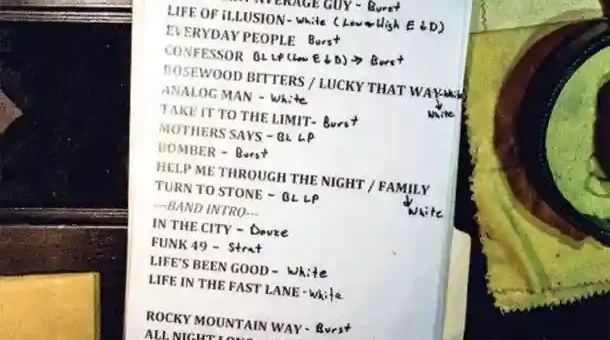 AVERAGE GUY - Burst
LIFE OF ILLUSION - White (Low + High E ↓ D)
EVERYDAY PEOPLE Burst
CONFESSOR BL LP (Low E ↓ D) → Burst
ROSEWOOD BITTERS / LUCKY THAT WAY - White
↓
White
ANALOG MAN - White
TAKE IT TO THE LIMIT - Burst
MOTHERS SAYS - BL LP
BOMBER - Burst
HELP ME THROUGH THE NIGHT / FAMILY
↓
White
TURN TO STONE - BL LP
---BAND INTRO---
IN THE CITY - Douze
FUNK 49 - Strat
LIFE'S BEEN GOOD - White
LIFE IN THE FAST LANE - White
ROCKY MOUNTAIN WAY - Burst
ALL NIGHT LONG